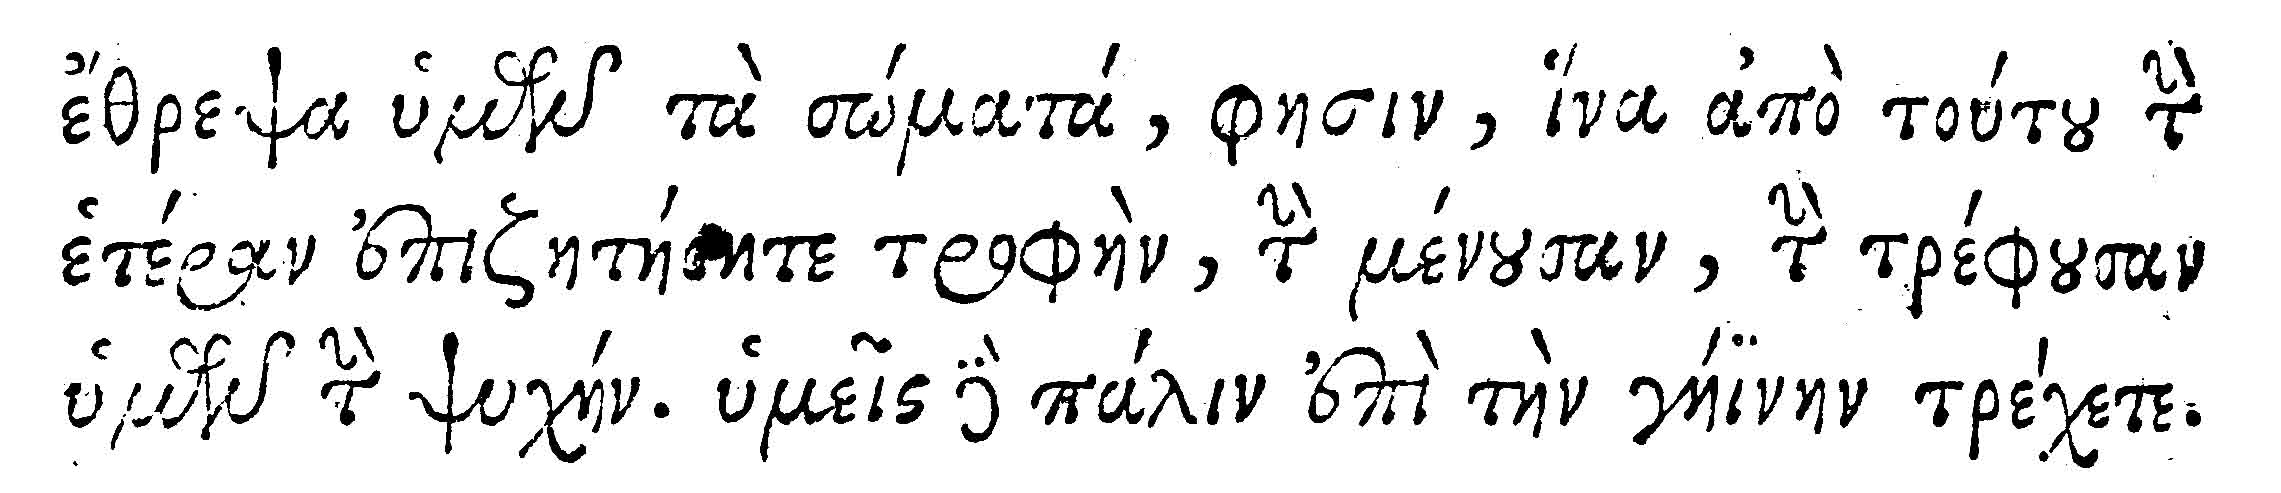 ἔθρεψα ὑμῶν τὰ σώματά, φησιν, ἵνα ἀπὸ τούτου τὴν
ἑτέραν ἐπιζητήσητε τροφὴν, τὴν μένουσαν, τὴν τρέφουσαν
ὑμῶν τὴν ψυχήν. ὑμεῖς δὲ πάλιν ἐπὶ τὴν γηΐνην τρέχετε.